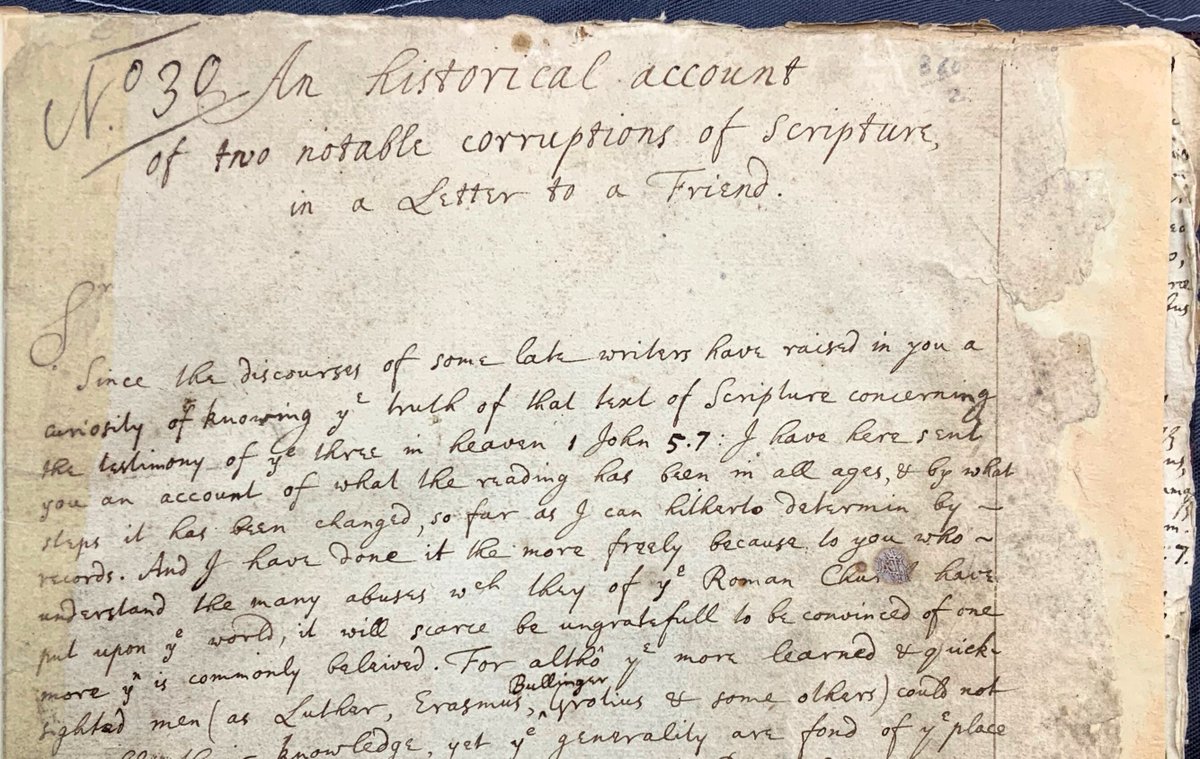 No 30 An historical account
of two notable corruptions of Scripture,
in a Letter to a Friend.
Sr
Since the discourses of some late writers have raised in you a
curiosity of knowing ye truth of that text of Scripture concerning
the testimony of ye three in heaven 1 John 5.7: I have here sent
you an account of what the reading has been in all ages, & by what
steps it has been changed, so far as I can hitherto determin by
records. And I have done it the more freely because to you who
understand the many abuses wch they of ye Roman Church have
put upon ye world, it will scarce be ungratefull to be convinced of one
more yn is commonly beleived. For altho ye more learned & quick-
sighted men (as Luther, Erasmus, Bullinger, Grotius & some others) could not
knowledge, yet ye generality are fond of ye place